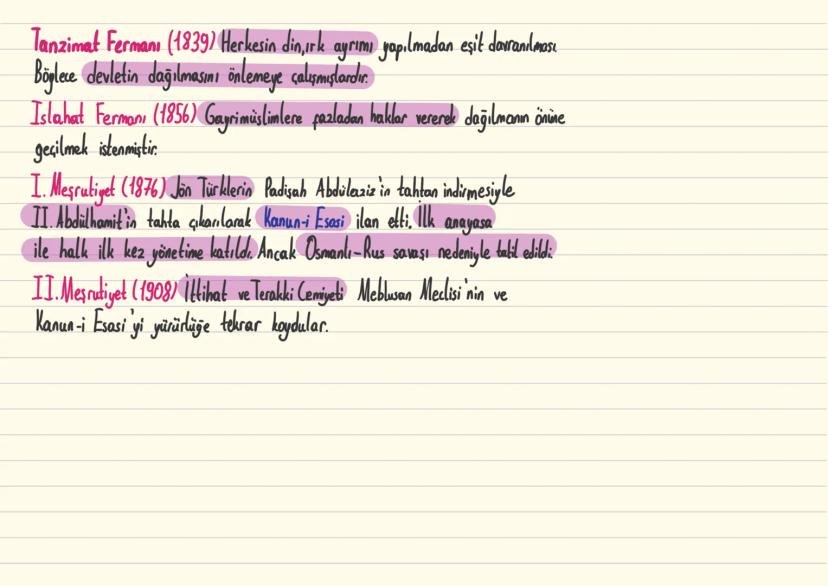 Tanzimat Fermanı (1839) Herkesin din,ırk ayrımı yapılmadan eşit davranılması
Böylece devletin dağılmasını önlemeye çalışmışlardır.
Islahat Fermanı (1856) Gayrimüslimlere fazladan haklar vererek dağılmanın önüne
geçilmek istenmiştir.
I. Meşrutiyet (1876) Jön Türklerin Padişah Abdülaziz'in tahtan indirmesiyle
II. Abdülhamit'in tahta çıkarılarak Kanun-i Esasi ilan etti. İlk anayasa
ile halk ilk kez yönetime katıldı. Ancak Osmanlı-Rus savaşı nedeniyle tatil edildi.
II. Meşrutiyet (1908) İttihat ve Terakki Cemiyeti Meblusan Meclisi'nin ve
Kanun-i Esasi'yi yürürlüğe tekrar koydular.